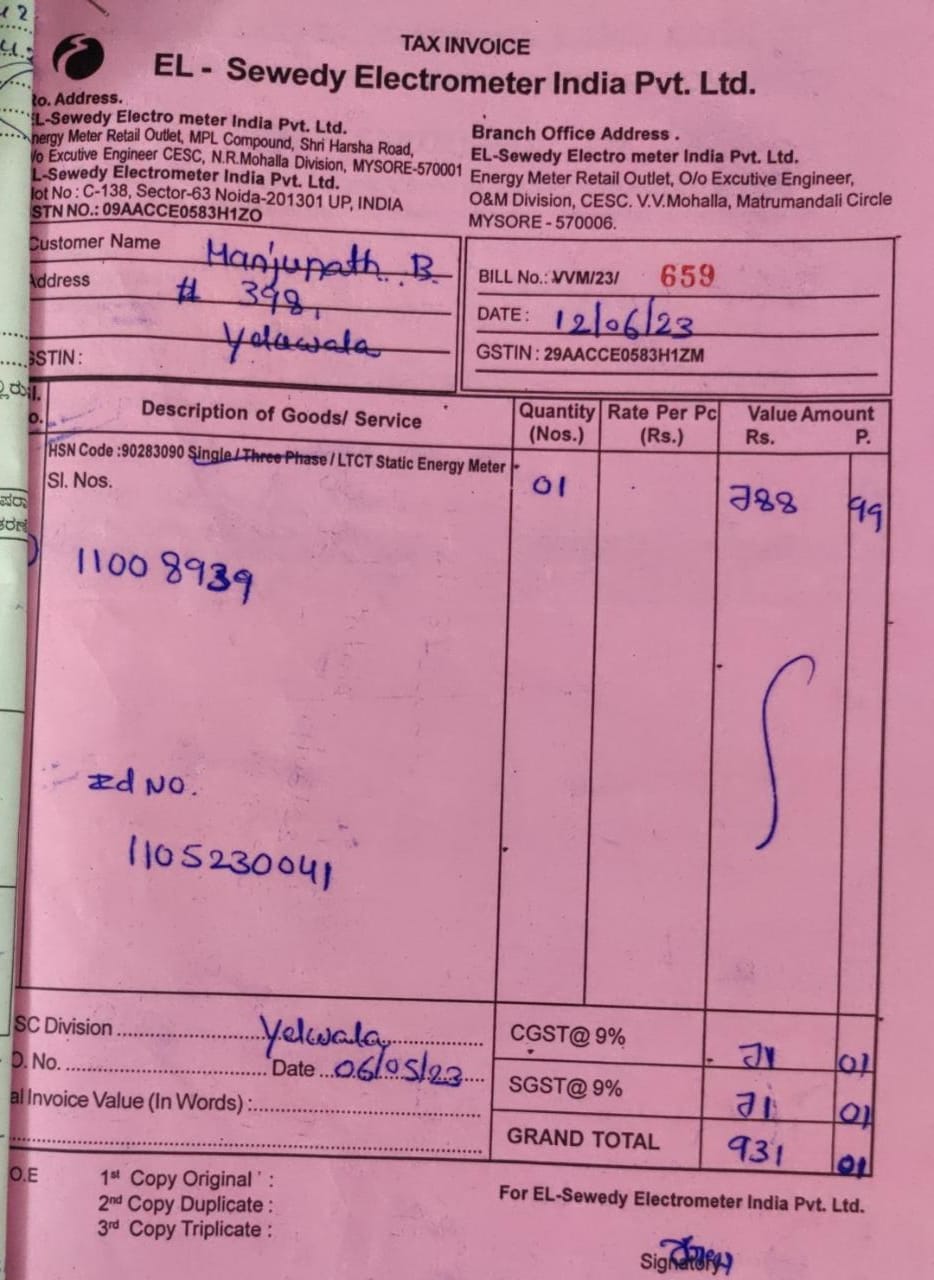 TAX INVOICE
EL - Sewedy Electrometer India Pvt. Ltd.
to. Address.
EL-Sewedy Electro meter India Pvt. Ltd.
nergy Meter Retail Outlet, MPL Compound, Shri Harsha Road,
/o Excutive Engineer CESC, N.R.Mohalla Division, MYSORE-570001
L-Sewedy Electrometer India Pvt. Ltd.
lot No : C-138, Sector-63 Noida-201301 UP, INDIA
STN NO.: 09AACCE0583H1ZO
Branch Office Address .
EL-Sewedy Electro meter India Pvt. Ltd.
Energy Meter Retail Outlet, O/o Excutive Engineer,
O&M Division, CESC. V.V.Mohalla, Matrumandali Circle
MYSORE - 570006.
Customer Name Manjunath. B.
Address # 398,
Yelawala
GSTIN :
BILL No.: VVM/23/ 659
DATE : 12/06/23
GSTIN : 29AACCE0583H1ZM
Description of Goods/ Service Quantity (Nos.) Rate Per Pc (Rs.) Value Amount Rs. P.
HSN Code :90283090 Single / Three Phase / LTCT Static Energy Meter
Sl. Nos. 01 788 99
11008939
Id NO.
1105230041
SC Division Yelwala
O. No. Date 06/05/23
al Invoice Value (In Words) :
CGST@ 9% 71 01
SGST@ 9% 71 01
GRAND TOTAL 931 01
O.E 1st Copy Original :
2nd Copy Duplicate :
3rd Copy Triplicate :
For EL-Sewedy Electrometer India Pvt. Ltd.
Signatory